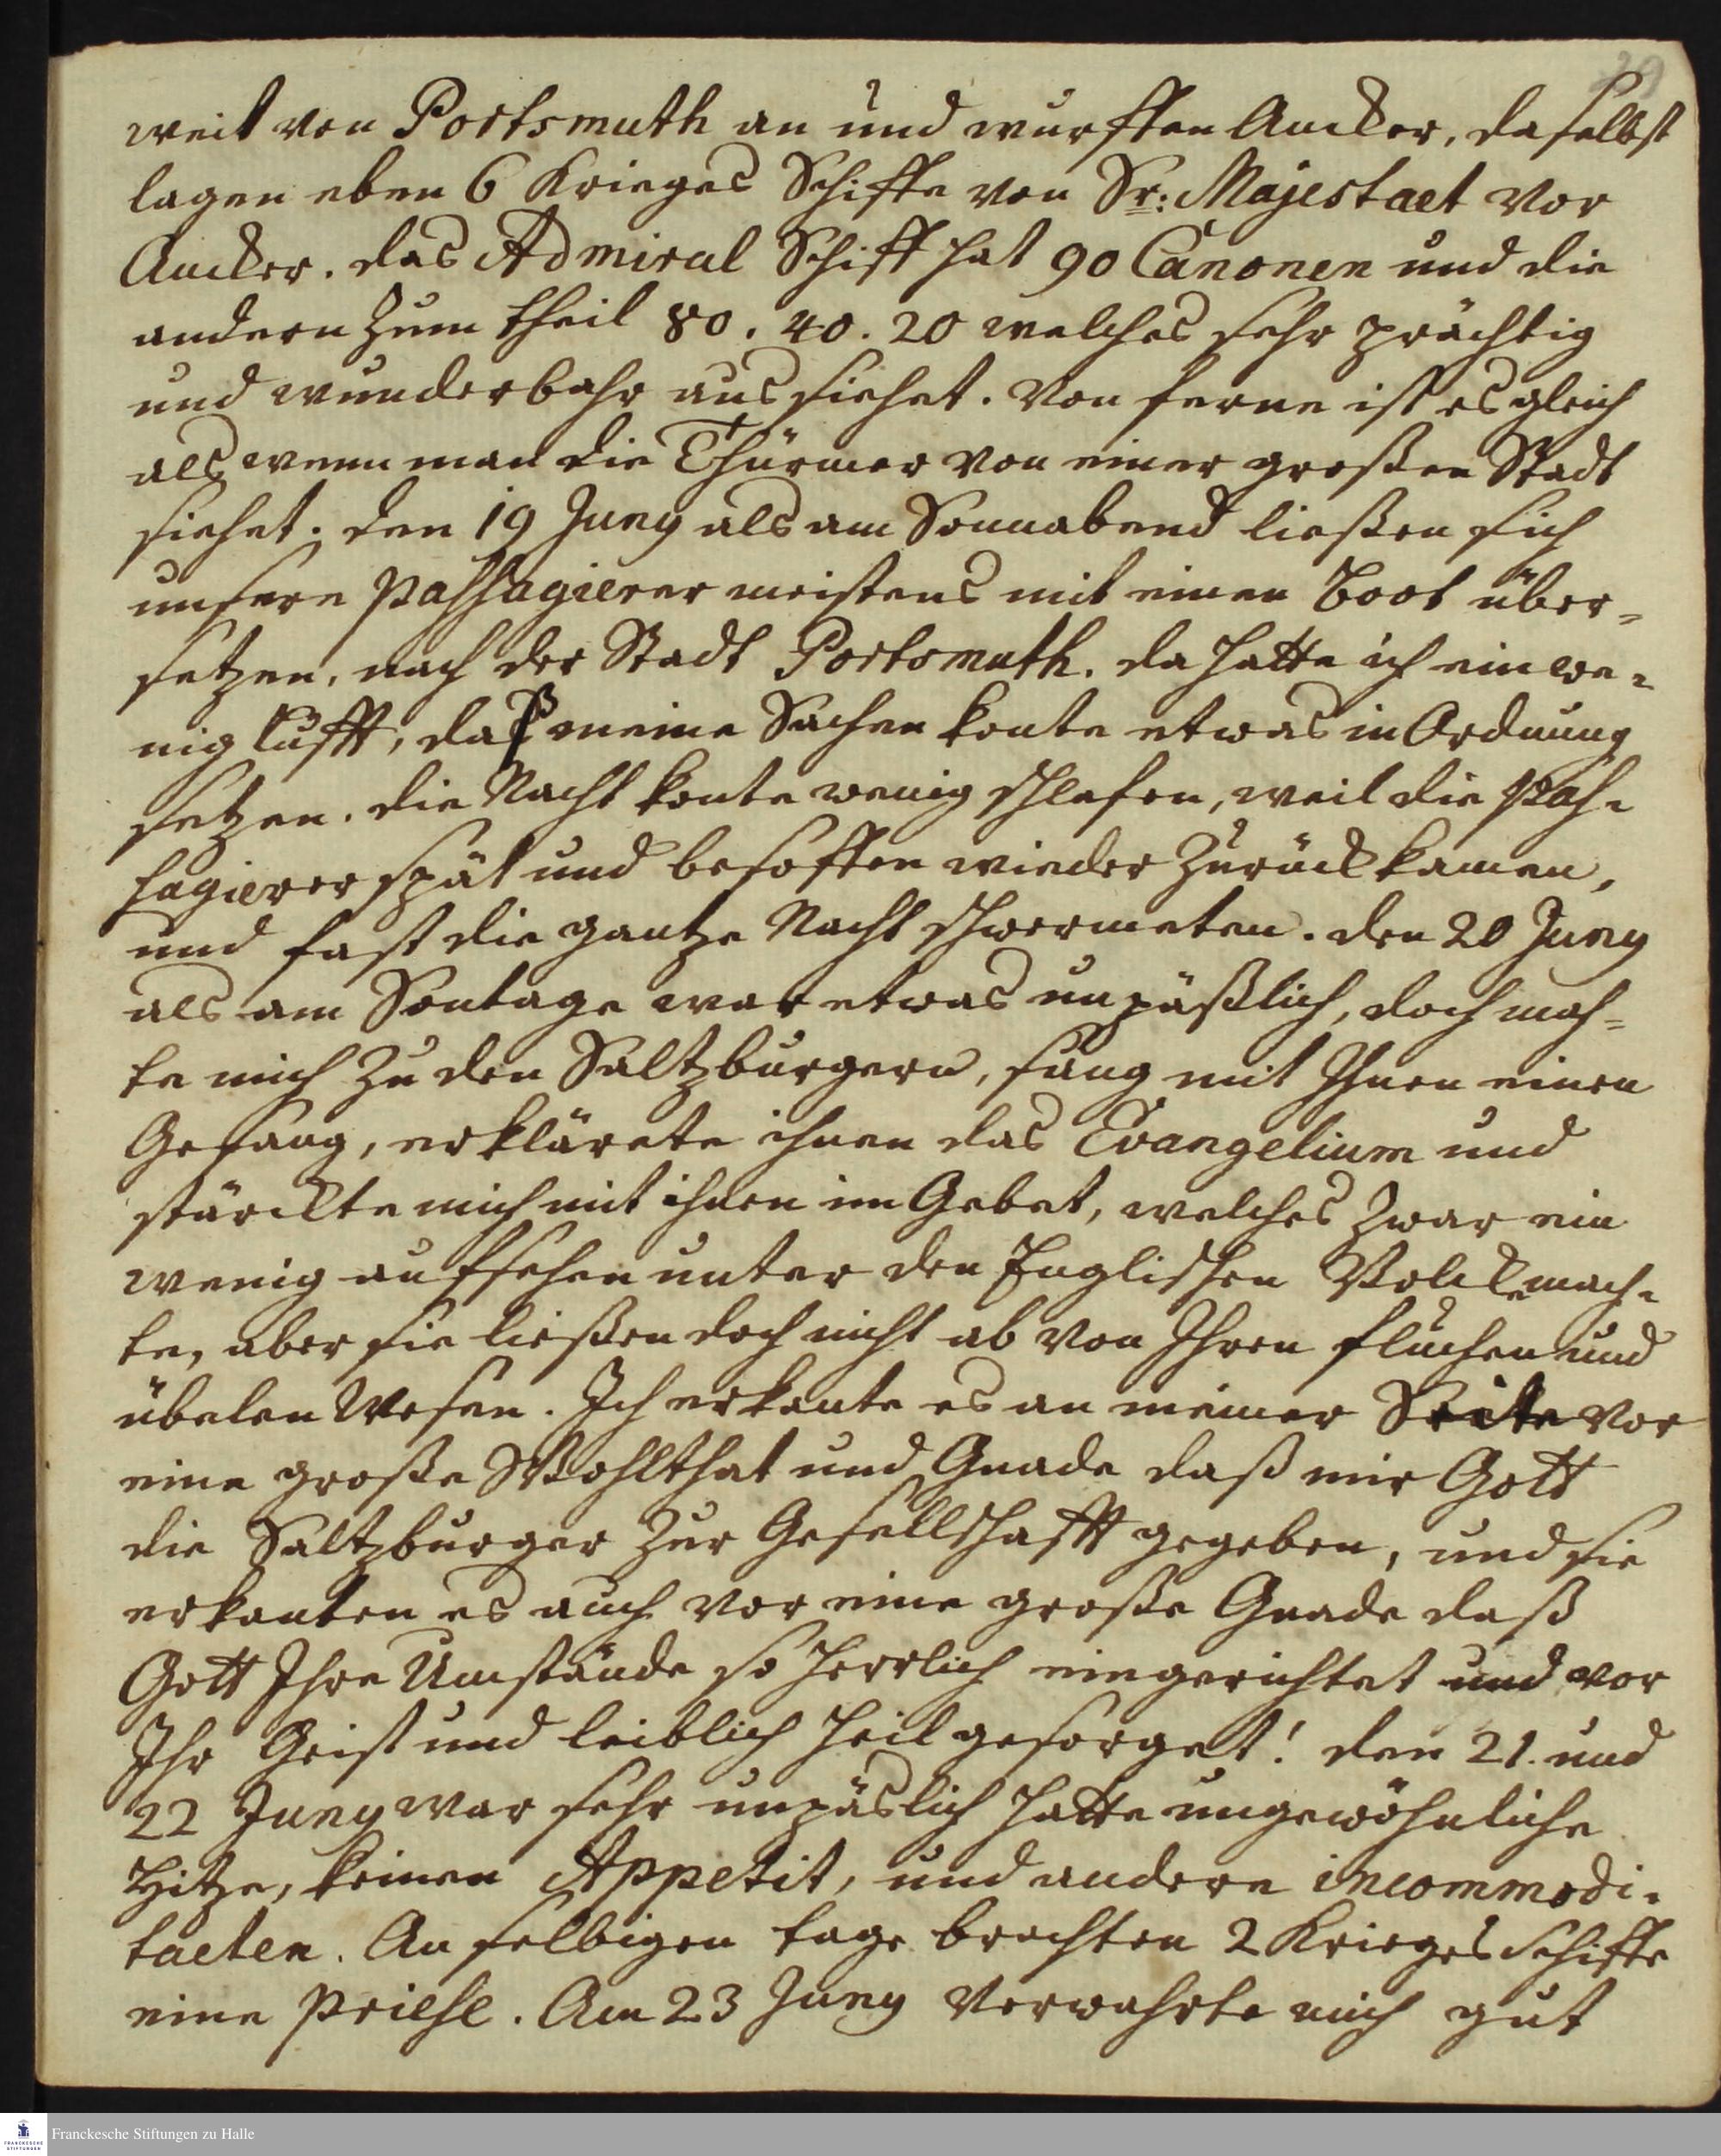 29
weit von Portsmuth an und wurffen Ancker, daselbst
lagen eben 6 Krieges Schiffe von Sr: Majestaet vor
Ancker. das Admiral Schiff hat 90 Canonen und die
andern zum theil 80. 40. 20 welches sehr prächtig
und wunderbahr aussiehet. Von ferne ist es gleich
als wenn man die Thürmer von einer großen Stadt
siehet. den 19 Juny als am Sonnabend ließen sich
unsere Passagierer meistens mit einen Boot über-
setzen, nach der Stadt Portsmuth. da hatte ich ein we-
nig Lufft, daß meine Sachen konte etwas in Ordnung
setzen. die Nacht konte wenig schlafen, weil die Pas-
sagierer spät und besoffen wieder zurück kamen,
und fast die gantze Nacht schwermeten. den 20 Juny
als am Sontage war etwas unpäßlich, doch mach-
te mich zu den Saltzburgern, sang mit Ihnen einen
Gesang, erklärete ihnen das Evangelium und
stärckte mich mit ihnen im Gebet, welches zwar ein
wenig aufsehen unter den Englischen Volcke mach-
te, aber sie ließen doch nicht ab von Ihren fluchen und
übelen Wesen. Ich erkante es an meiner Seite vor
eine große Wohlthat und Gnade daß mir Gott
die Saltzburger zur Gesellschafft gegeben, und sie
erkanten es auch vor eine große Gnade daß
Gott Ihre Umstände so herrlich eingerichtet und vor
Ihr Geist und leiblich Heil gesorget! den 21. und
22 Juny war sehr unpäslich hatte ungewöhnliche
Hitze, keinen Appetit, und andere incommodi-
taeten. An selbigen tage brachten 2 Krieges Schiffe
eine Priese. Am 23 Juny verwahrte mich gut
Franckesche Stiftungen zu Halle